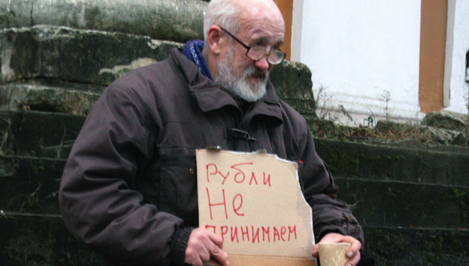 Рубли
Не
принимаем